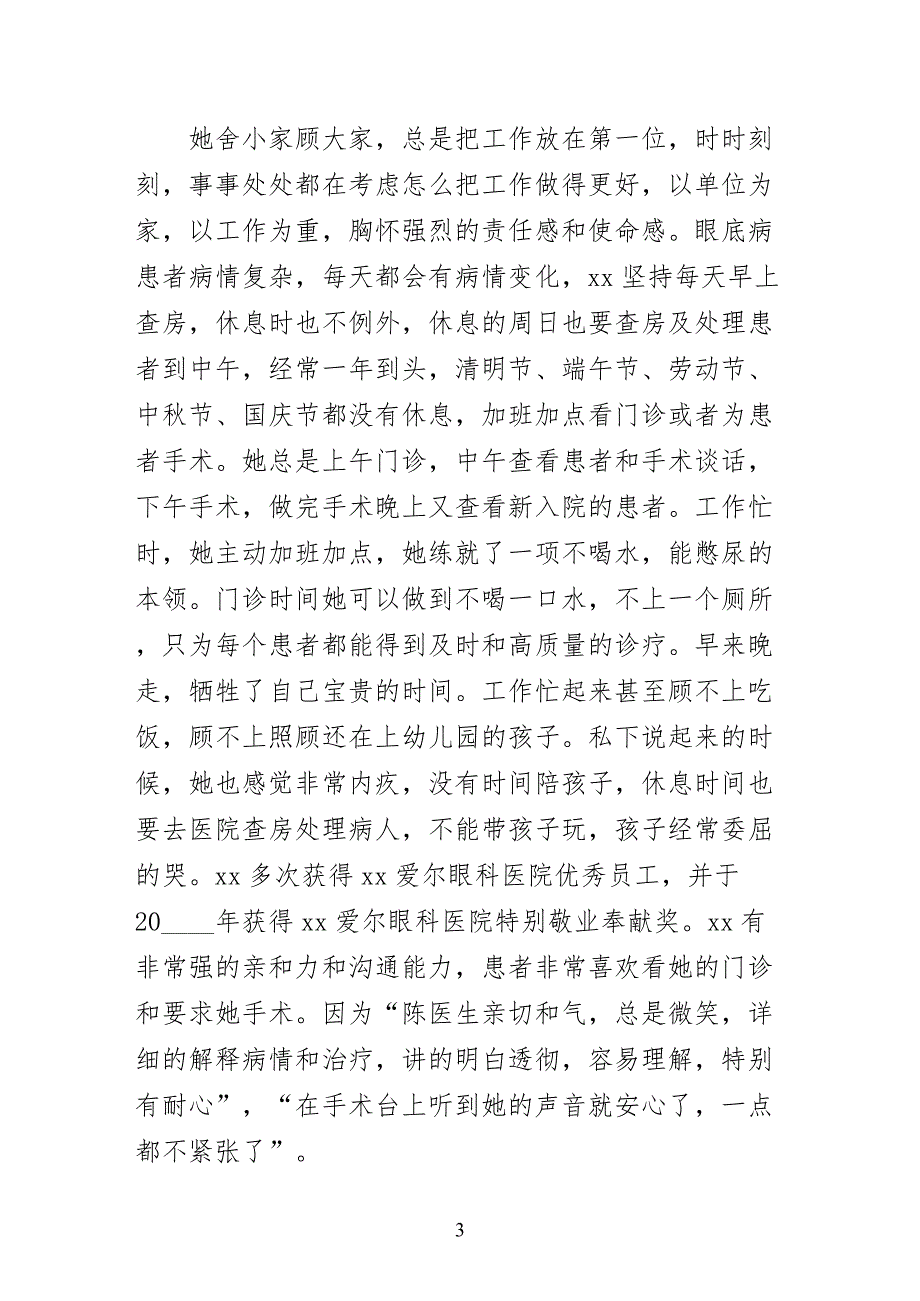 她舍小家顾大家，总是把工作放在第一位，时时刻
刻，事事处处都在考虑怎么把工作做得更好，以单位为
家，以工作为重，胸怀强烈的责任感和使命感。眼底病
患者病情复杂，每天都会有病情变化，xx 坚持每天早上
查房，休息时也不例外，休息的周日也要查房及处理患
者到中午，经常一年到头，清明节、端午节、劳动节、
中秋节、国庆节都没有休息，加班加点看门诊或者为患
者手术。她总是上午门诊，中午查看患者和手术谈话，
下午手术，做完手术晚上又查看新入院的患者。工作忙
时，她主动加班加点，她练就了一项不喝水，能憋尿的
本领。门诊时间她可以做到不喝一口水，不上一个厕所
，只为每个患者都能得到及时和高质量的诊疗。早来晚
走，牺牲了自己宝贵的时间。工作忙起来甚至顾不上吃
饭，顾不上照顾还在上幼儿园的孩子。私下说起来的时
候，她也感觉非常内疚，没有时间陪孩子，休息时间也
要去医院查房处理病人，不能带孩子玩，孩子经常委屈
的哭。xx 多次获得 xx 爱尔眼科医院优秀员工，并于
20____年获得 xx 爱尔眼科医院特别敬业奉献奖。xx 有
非常强的亲和力和沟通能力，患者非常喜欢看她的门诊
和要求她手术。因为“陈医生亲切和气，总是微笑，详
细的解释病情和治疗，讲的明白透彻，容易理解，特别
有耐心”，“在手术台上听到她的声音就安心了，一点
都不紧张了”。
3